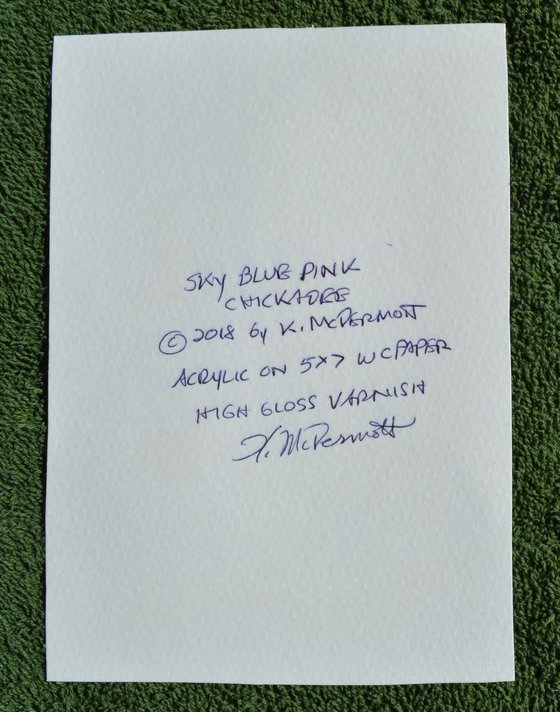 SKY BLUE PINK
CHICKADEE
© 2018 by K. McDERMOTT
ACRYLIC ON 5x7 WC PAPER
HIGH GLOSS VARNISH
K. McDermott